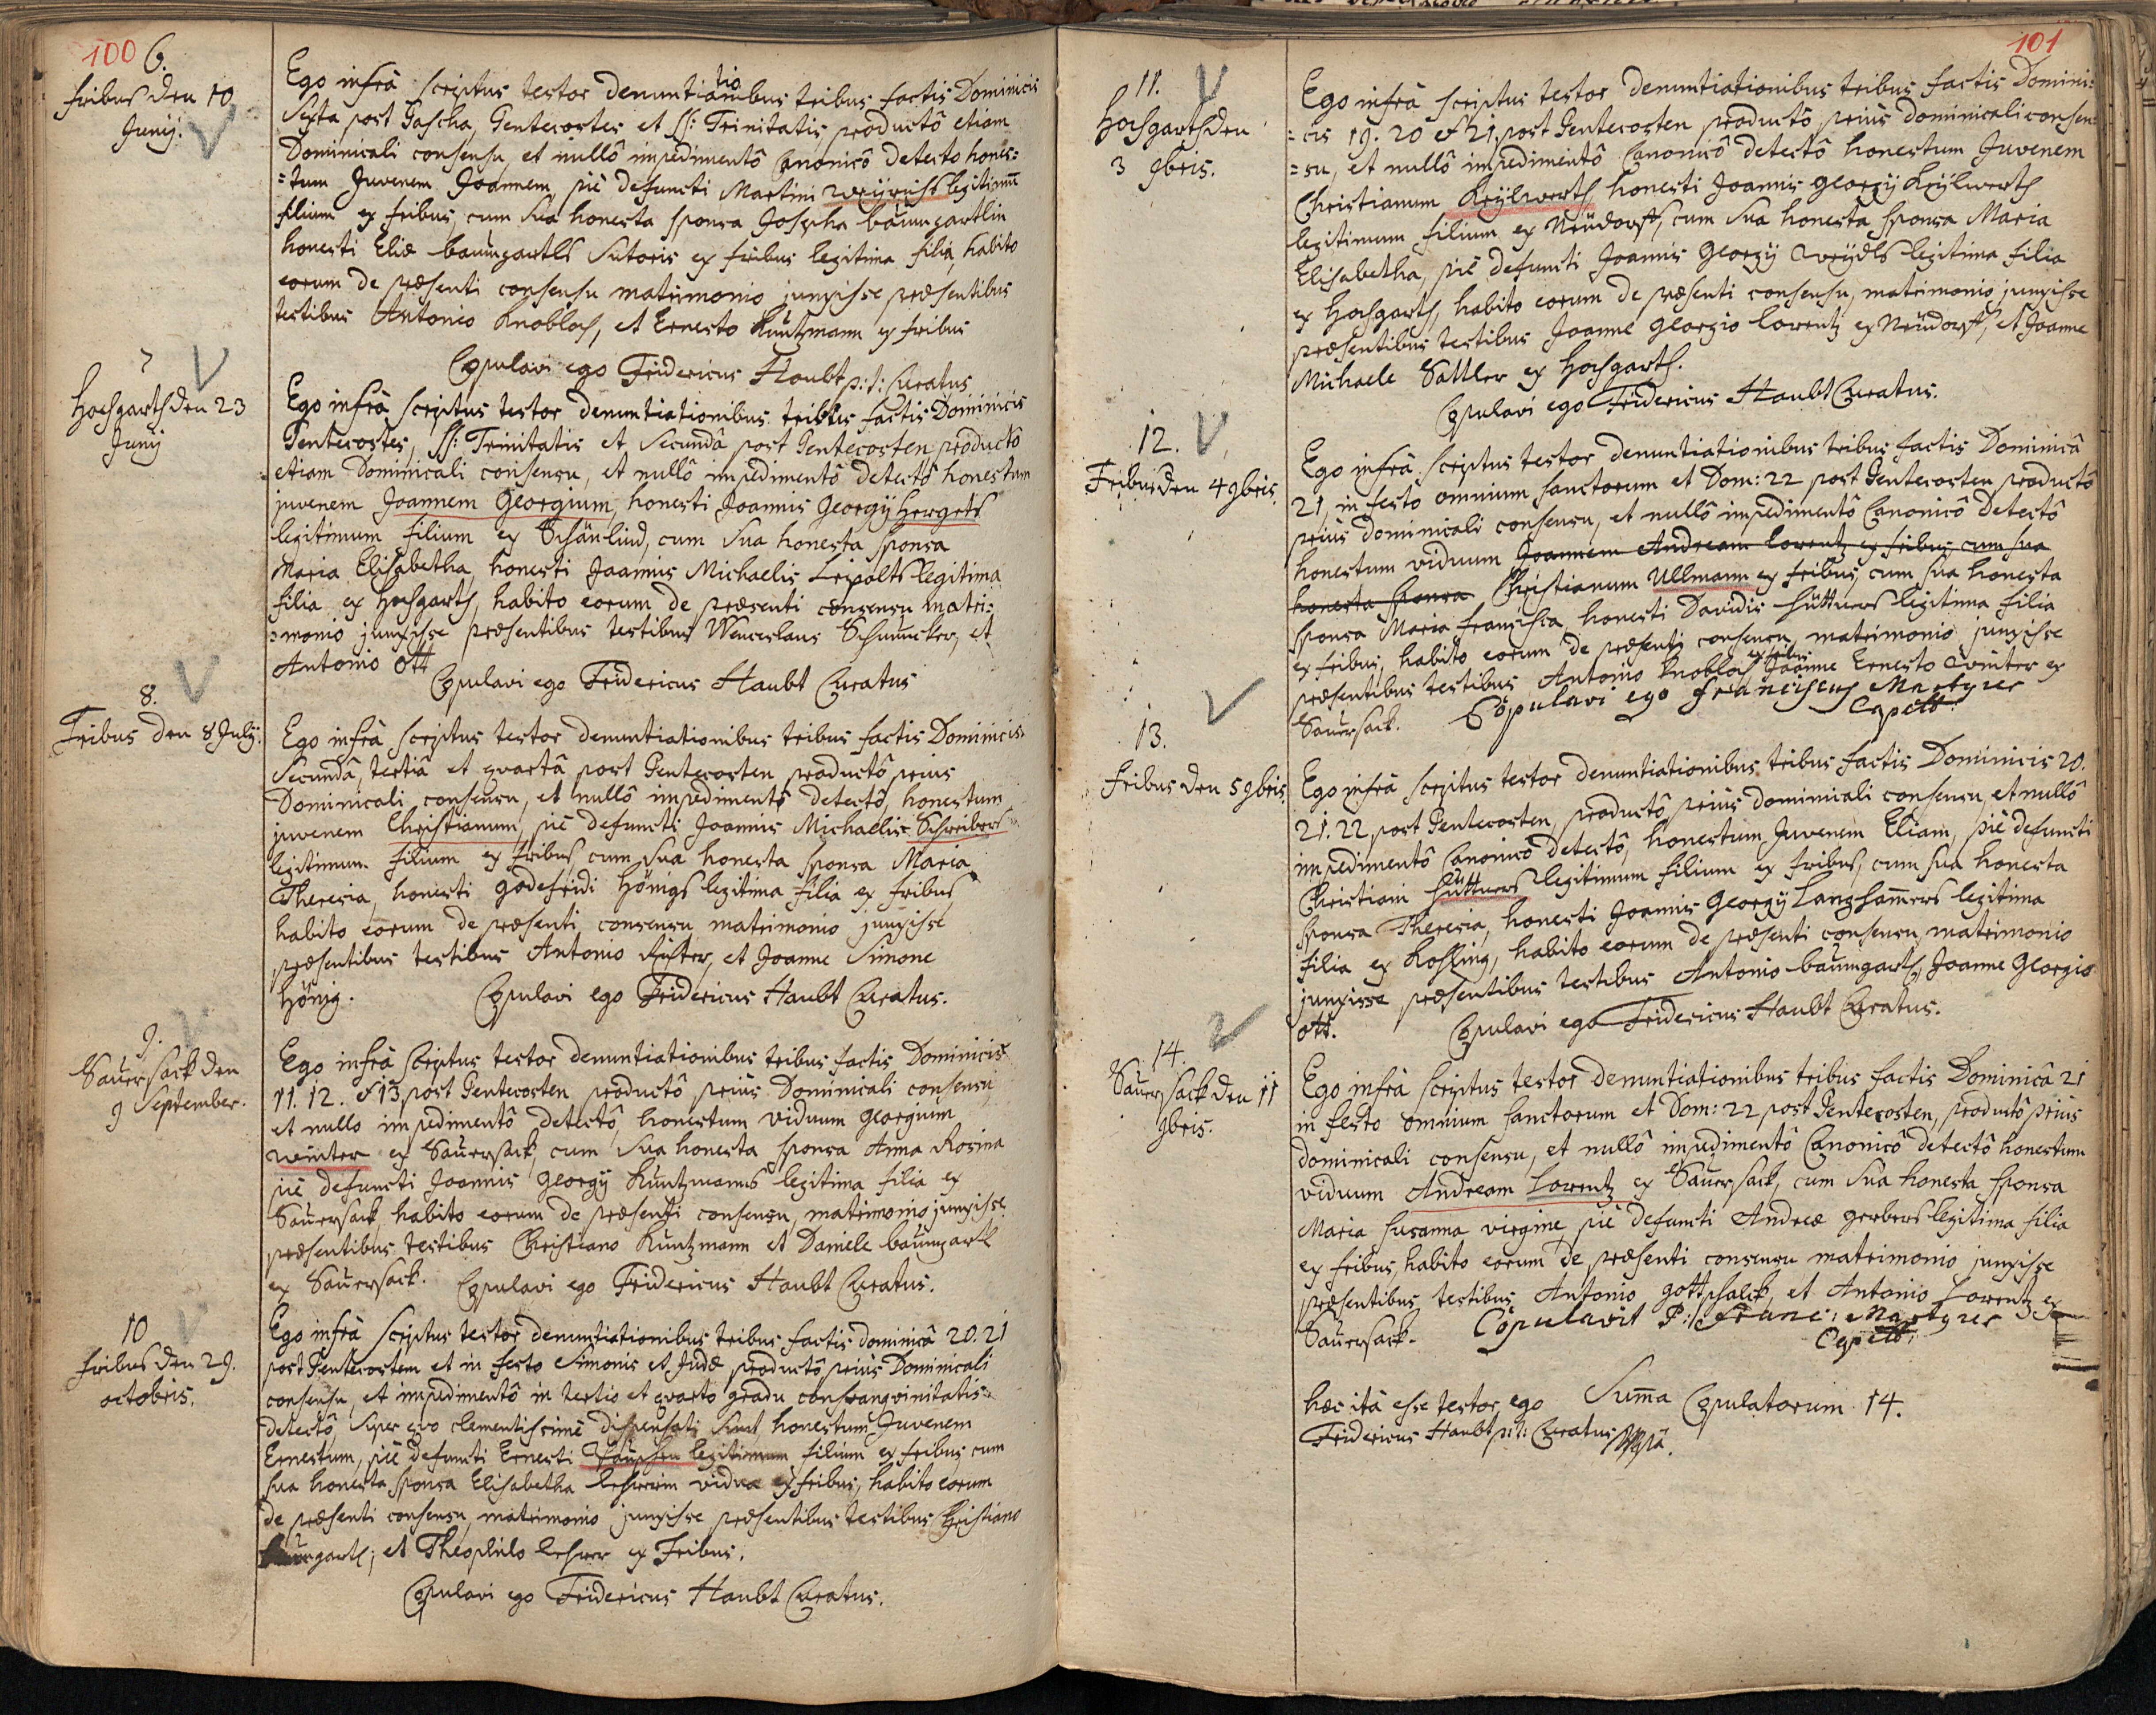 100
6.
fribus den 10
Junÿ.
Ego infrà scriptus testor denuntiationibus tribus factis Dominicis
Sexta post Pascha, Pentecostes et SS: Trinitatis, productô etiam
Dominicali consensu, et nullô impedimentô Canonicô detecto hones:
=tum Juvenem Joannem, piè defuncti Martini legitimũ
filium ex fribus, cum sua honesta sponsa Josepha baumgartlin
honesti Eliæ baumgartls Sutoris ex fribus legitima filia, habito
eorum de præsenti consensu matrimonio junxisse præsentibus
testibus Antonio Knobloch, et Ernesto Kuntzmann ex fribus
Copulavi ego Fridericus Haubt p:t: Curatus
7
Hochgarth den 23
Junÿ
Ego infrà scriptus testor denuntiationibus tribus factis Dominicis
Pentecostes, SS: Trinitatis et Secundâ post Pentecosten, productô
etiam Dominicali consensu, et nullô impedimentô detectô honestum
juvenem Joannem Georgium, honesti Joannis Georgÿ Hergets
legitimum filium ex Schänlind, cum sua honesta sponsa
Maria Elisabetha, honesti Joannis Michaelis Leipolts legitima
filia ex Hochgarth, habito eorum de præsenti consensu matri:
=monio junxisse præsentibus testibus Wenceslaus Schmucker, et
Antonio Ott
Copulavi ego Fridericus Haubt Curatus
8.
Fribus den 8 Julÿ.
Ego infrà scriptus testor denuntiationibus tribus factis Dominicis
Secundâ, tertiâ et quartâ post Pentecosten productô prius
Dominicali consensu, et nullô impedimentô detectô, honestum
juvenem Christianum, piè defuncti Joannis Michaelis Schreibers
legitimum filium ex fribus, cum sua honesta sponsa Maria
Theresia, honesti godefridi Hönigs legitima filia ex fribus,
habito eorum de præsenti consensu matrimonio junxisse
præsentibus testibus Antonio Richter, et Joanne Simone
Hönig.
Copulavi ego Fridericus Haubt Curatus.
9.
Sauersack den
9 September.
Ego infrà scriptus testor denuntiationibus tribus factis Dominicis
11. 12. & 13 post Pentecosten, productô prius Dominicali consensu
et nullo impedimentô detectô, honestum viduum georgium
winter ex Sauersack, cum sua honesta sponsa Anna Rosina
piè defuncti Joannis Georgÿ Kuntzmanns legitima filia ex
Sauersack, habito eorum de præsenti consensu, matrimonio junxisse
præsentibus testibus Christiano Kuntzmann et Daniele baumgartl
ex Sauersack. Copulavi ego Fridericus Haubt Curatus.
10
fribus den 29.
octobris.
Ego infrà scriptus testor denuntiationibus tribus factis dominicâ 20. 21
post Pentecostem et in festo Simonis et Judæ, productô prius Dominicali
consensu, et impedimentô in tertio et quarto gradu consanquinitatis
detectô, super quo clementissimè dispensati sunt honestum Juvenem
Ernestum, piè defuncti Ernesti legitimum filium ex fribus, cum
sua honesta sponsa Elisabetha Lehrerin vidua ex fribus, habito eorum
de præsenti consensu, matrimonio junxisse præsentibus testibus Christiano
baumgartl, et Theophilo Lehrer ex Fribus.
Copulavi ego Fridericus Haubt Curatus.
101
11.
Hochgarth den
3 9bris.
Ego infrà scriptus testor denuntiationibus tribus factis Domini:
=cis 19. 20 & 21, post Pentecosten productô prius dominicali consen:
=su, et nullô impedimentô Canonicô detectô honestum Juvenem
Christianum Keÿlwerth honesti Joannis georgÿ Keÿlwerth
legitimum filium ex Neudorff, cum sua honesta sponsa Maria
Elisabetha, piè defuncti Joannis Georgÿ legitima filia
ex Hochgarth, habito eorum de præsenti consensu, matrimonio junxisse
præsentibus testibus Joanne georgio Lorentz ex Neudorff, et Joanne
Michaele Sattler ex Hochgarth.
Copulavi ego Fridericus Haubt Curatus.
12.
Fribus den 4 9bris
Ego infrà scriptus testor denuntiationibus tribus factis Dominicâ
21, in festo omnium sanctorum et Dom: 22 post Pentecosten productô
prius dominicali consensu, et nullô impedimentô Canonicô detectô
honestum viduum Joannem Andream Lorentz ex fribus, cum sua
honesta sponsa Christianum Ullmann ex fribus, cum sua honesta
sponsa Maria francisca, honesti Davidis Hüttners legitima filia
ex fribus, habito eorum de præsenti consensu, matrimonio junxisse
præsentibus testibus Antonio Knobloch ex fribus Joanne Ernesto winter ex
Sauersack. Copulavi ego Franciscus Martyrer
Capell:
13.
fribus den 5 9bris.
Ego infrà scriptus testor denuntiationibus tribus factis Dominicis 20.
21. 22 post Pentecosten, productô prius dominicali consensu, et nullô
impedimentô Canonicô detectô, honestum Juvenem Eliam, piè defuncti
Christiani Hüttners legitimum filium ex fribus, cum sua honesta
sponsa Theresia, honesti Joannis Georgÿ Langham̃ers legitima
filia ex Kohling, habito eorum de præsenti consensu, matrimonio
junxisse præsentibus testibus Antonio baumgartl, Joanne Georgio
ott.
Copulavi ego Fridericus Haubt Curatus.
14.
Sauersack den 11
9bris.
Ego infrà scriptus testor denuntiationibus tribus factis Dominicâ 21
in festo omnium sanctorum et Dom: 22 post Pentecosten, productô prius
dominicali consensu, et nullô impedimentô Canonicô detectô honestum
viduum Andream Lorentz ex Sauersack, cum sua honesta sponsa
Maria susanna virgine, piè defuncti Andreæ gerbers legitima filia
ex fribus, habito eorum de præsenti consensu matrimonio junxisse
præsentibus testibus Antonio gottschalck, et Antonio Lorentz ex
Sauersack. Copulavit P: Franc: Martyrer
Capell:
Hæc ità esse testor ego Sum̃a Copulatorum 14.
Fridericus Haubt p:t: Curatus Mpiâ.